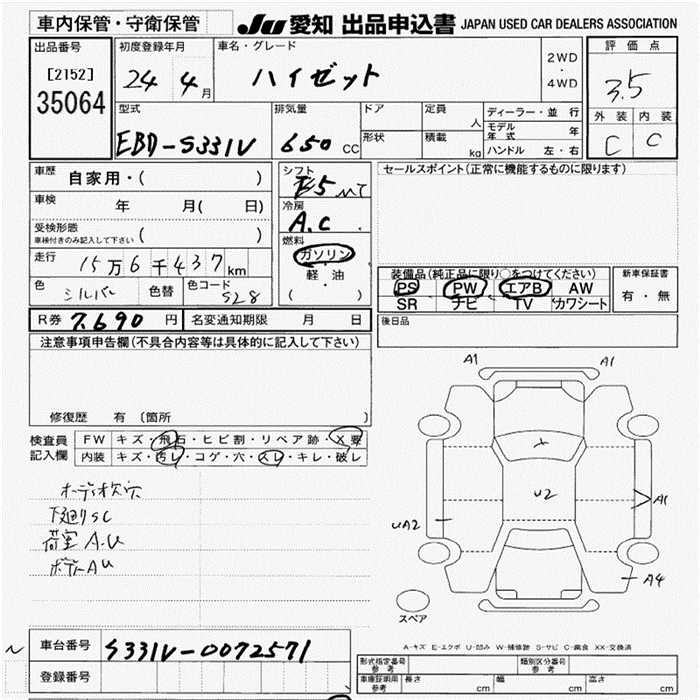 車内保管・守衛保管
JU 愛知 出品申込書 JAPAN USED CAR DEALERS ASSOCIATION
出品番号
[2152]
35064
初度登録年月
24 4月
車名・グレード
ハイゼット
2WD
・
4WD
評価点
3.5
外装 内装
C C
型式
EBD-S331V
排気量
650 CC
ドア
形状
定員
人
積載
kg
ディーラー・並行
モデル年式 年
ハンドル 左・右
車歴 自家用・( )
車検 年 月( 日)
受検形態
車検付きのみ記入して下さい ( )
走行 15万6千437km
色 シルバー 色替 色コード S28
シフト
F5 MT
冷房
A.C
燃料
ガソリン
軽・油
( ・ )
セールスポイント(正常に機能するものに限ります)
装備品(純正品に限り○をつけてください)
PS PW エアB AW
SR ナビ TV カワシート
新車保証書
有・無
R券 7,690 円 名変通知期限 月 日
後日品
注意事項申告欄(不具合内容等は具体的に記入して下さい)
修復歴 有 〔箇所
検査員
記入欄
FW キズ・飛石・ヒビ割・リペア跡・X要
内装 キズ・汚レ・コゲ・穴・スレ・キレ・破レ
ボディ小穴
下廻りSC
荷室A.U
ボデーAU
A1 A1
U2
UA2
A1
A4
スペア
A-キズ E-エクボ U-凹み W-補修跡 S-サビ C-腐食 XX-交換済
車台番号 S331V-0072571
登録番号
形式指定番号
参考
類別区分番号
参考
車庫証明用
参考
長さ cm 幅 cm 高さ cm